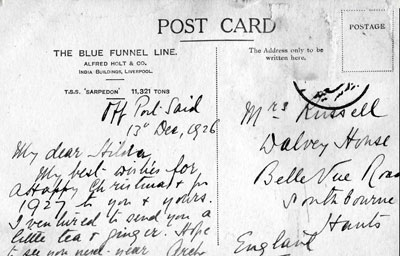 POST CARD
THE BLUE FUNNEL LINE.
ALFRED HOLT & CO.
INDIA BUILDINGS, LIVERPOOL.
T.S.S. "SARPEDON" 11,321 TONS
Off Port Said
13th Dec, 1926
My dear Hilda
My best wishes for
a Happy Christmas & for
1927 to you & yours.
I ventured to send you a
little tea & ginger. Hope
to see you next year
The Address only to be
written here.
POSTAGE
Mrs Russell
Dalvey House
Belle Vue Road
Southbourne
Hants
England